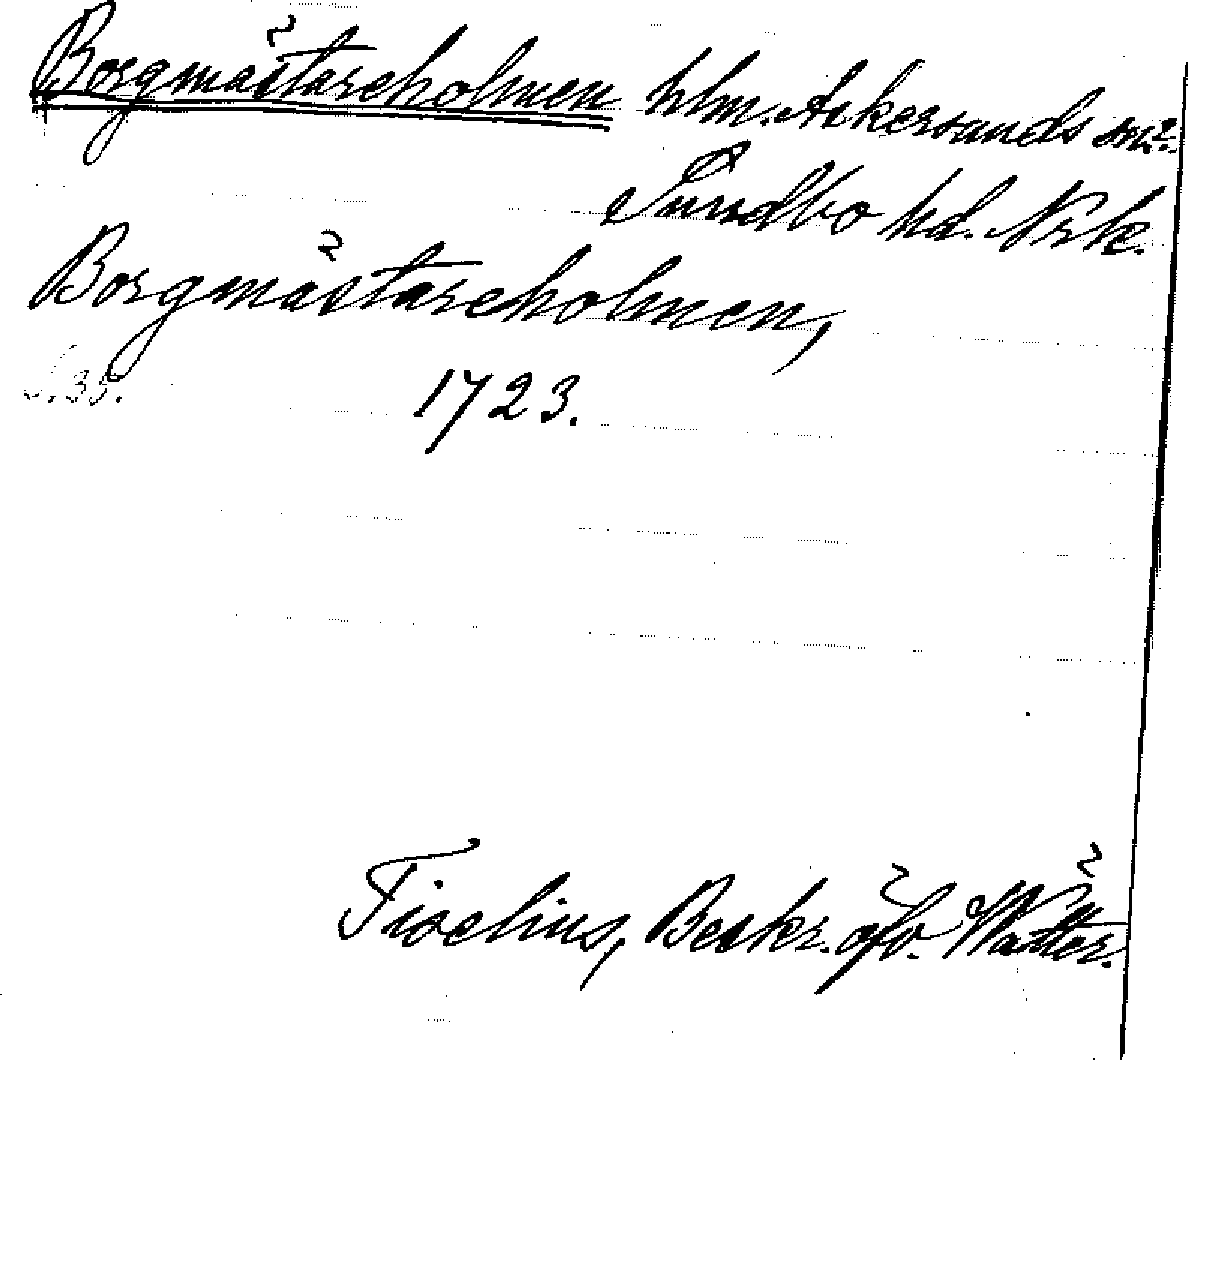 Borgmästareholmen hlm. Askersunds sn?.
Sundbo hd. Nrk.
Borgmästareholmen,
S. 35.
1723.
Tiselius, Beskr. öfv. Wätter.